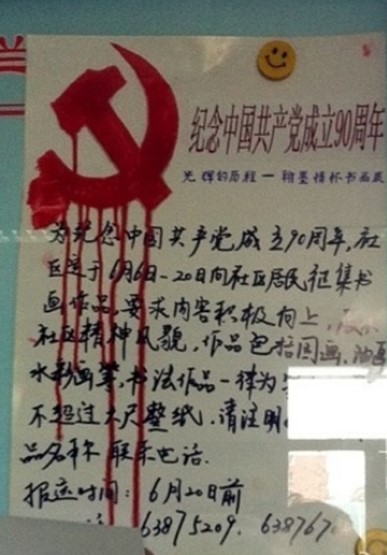 纪念中国共产党成立90周年
光辉的历程一翰墨情怀书画展
为纪念中国共产党成立90周年,社
区定于6月6日-20日向社区居民征集书
画作品,要求内容积极向上,
社区精神风貌,作品包括国画、油画
水彩画等,书法作品一律为
不超过六尺整纸.请注明
品名称 联系电话.
报送时间:6月20日前
63875209. 638767